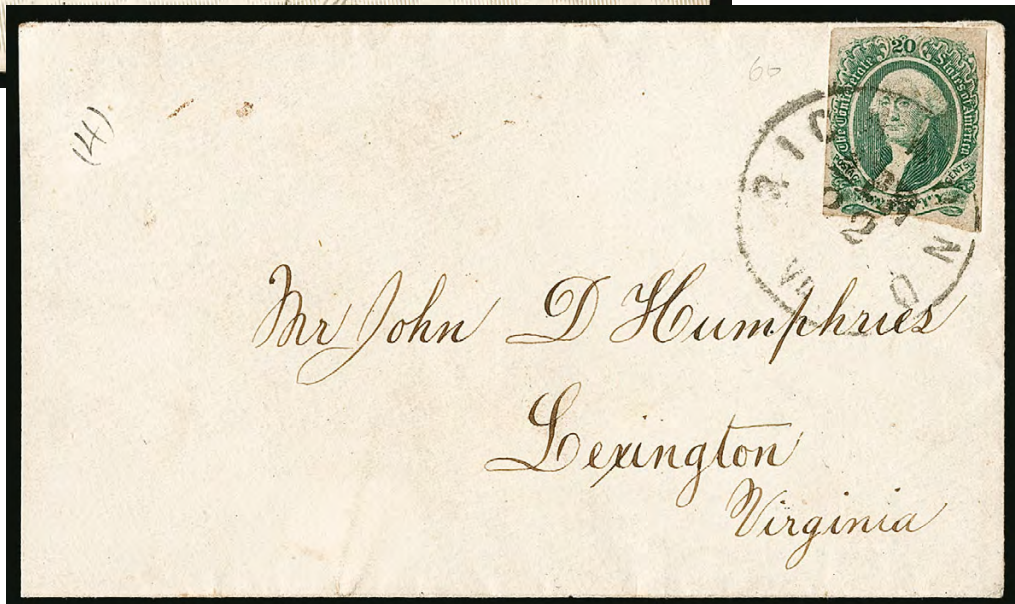 60
(4)
20
The Confederate States of America
POSTAGE CENTS
RICHMOND
22
VA
Mr John D Humphries
Lexington
Virginia